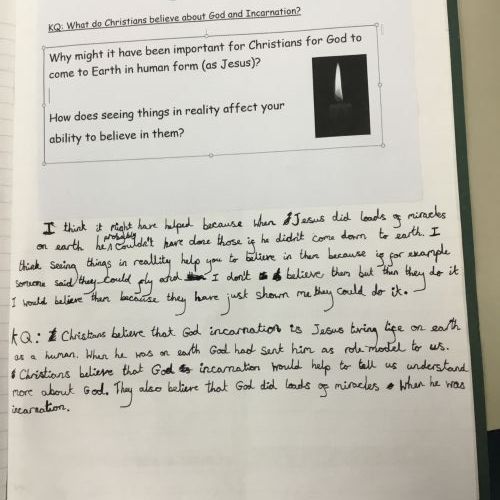 KQ: What do Christians believe about God and Incarnation?
Why might it have been important for Christians for God to
come to Earth in human form (as Jesus)?
How does seeing things in reality affect your
ability to believe in them?
I think it might have helped because when Jesus did loads of miracles
on earth he probably couldn't have done those if he didn't come down to earth. I
think seeing things in reallity help you to believe in them because if for example
someone said they could fly and I don't believe them but then they do it
I would believe them because they have just shown me they could do it.
KQ: Christians believe that God incarnation is Jesus living life on earth
as a human. When he was on earth God had sent him as role model to us.
Christians believe that God incarnation would help to tell us understand
more about God. They also believe that God did loads of miracles when he was
incarnation.